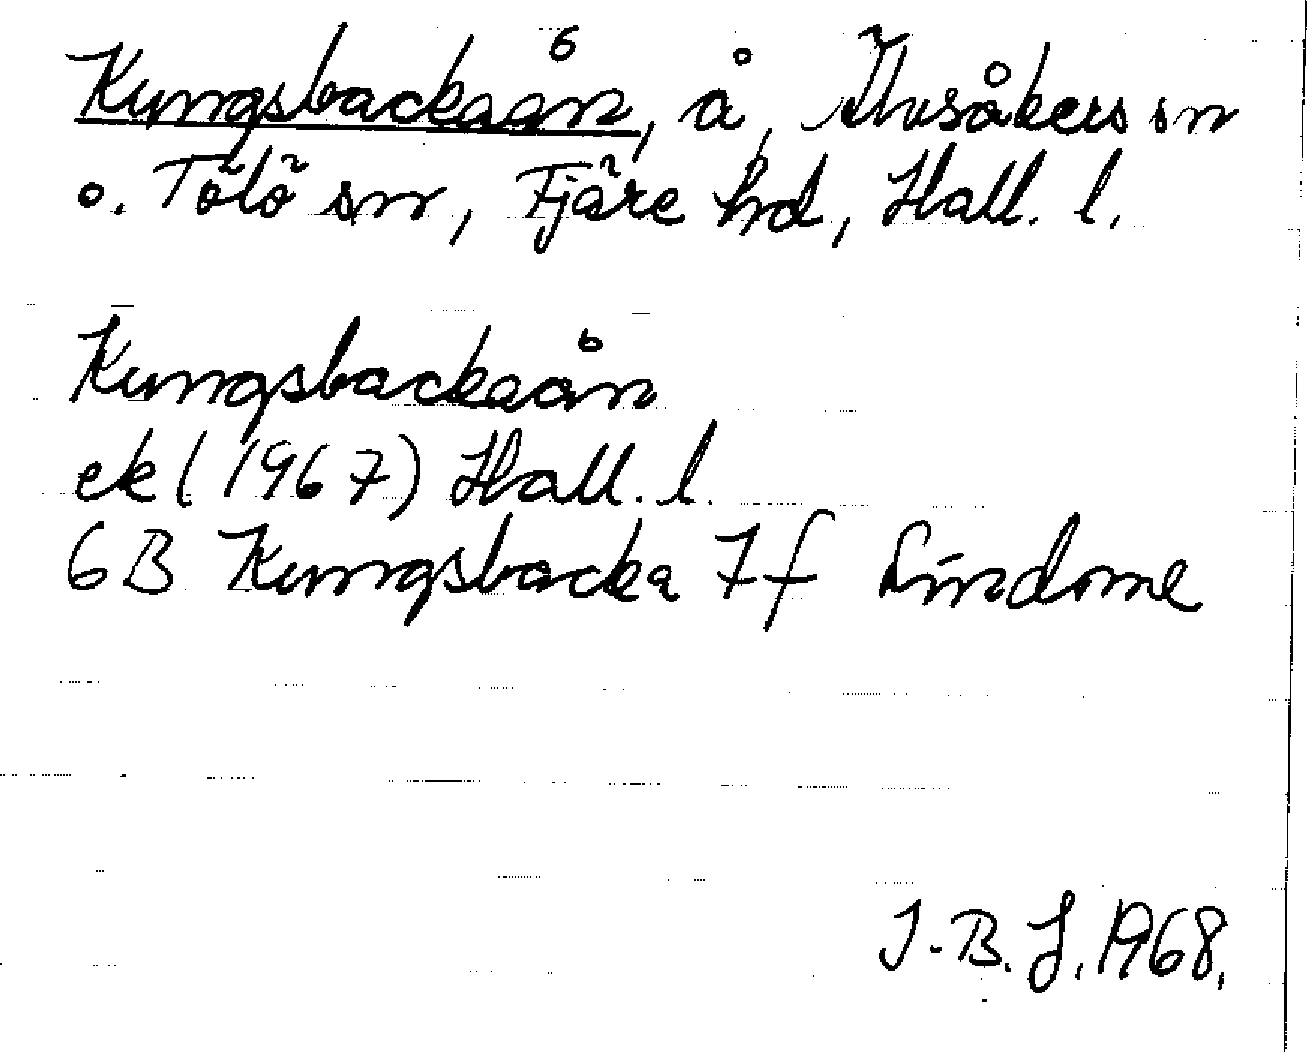 Kungsbackaån, å, Älvsåkers sn
o. Tölö sn, Fjäre hd, Hall. l.
Kungsbackaån
ek (1967) Hall. l.
6B Kungsbacka 7f Lindome
J.-B. J. 1968.